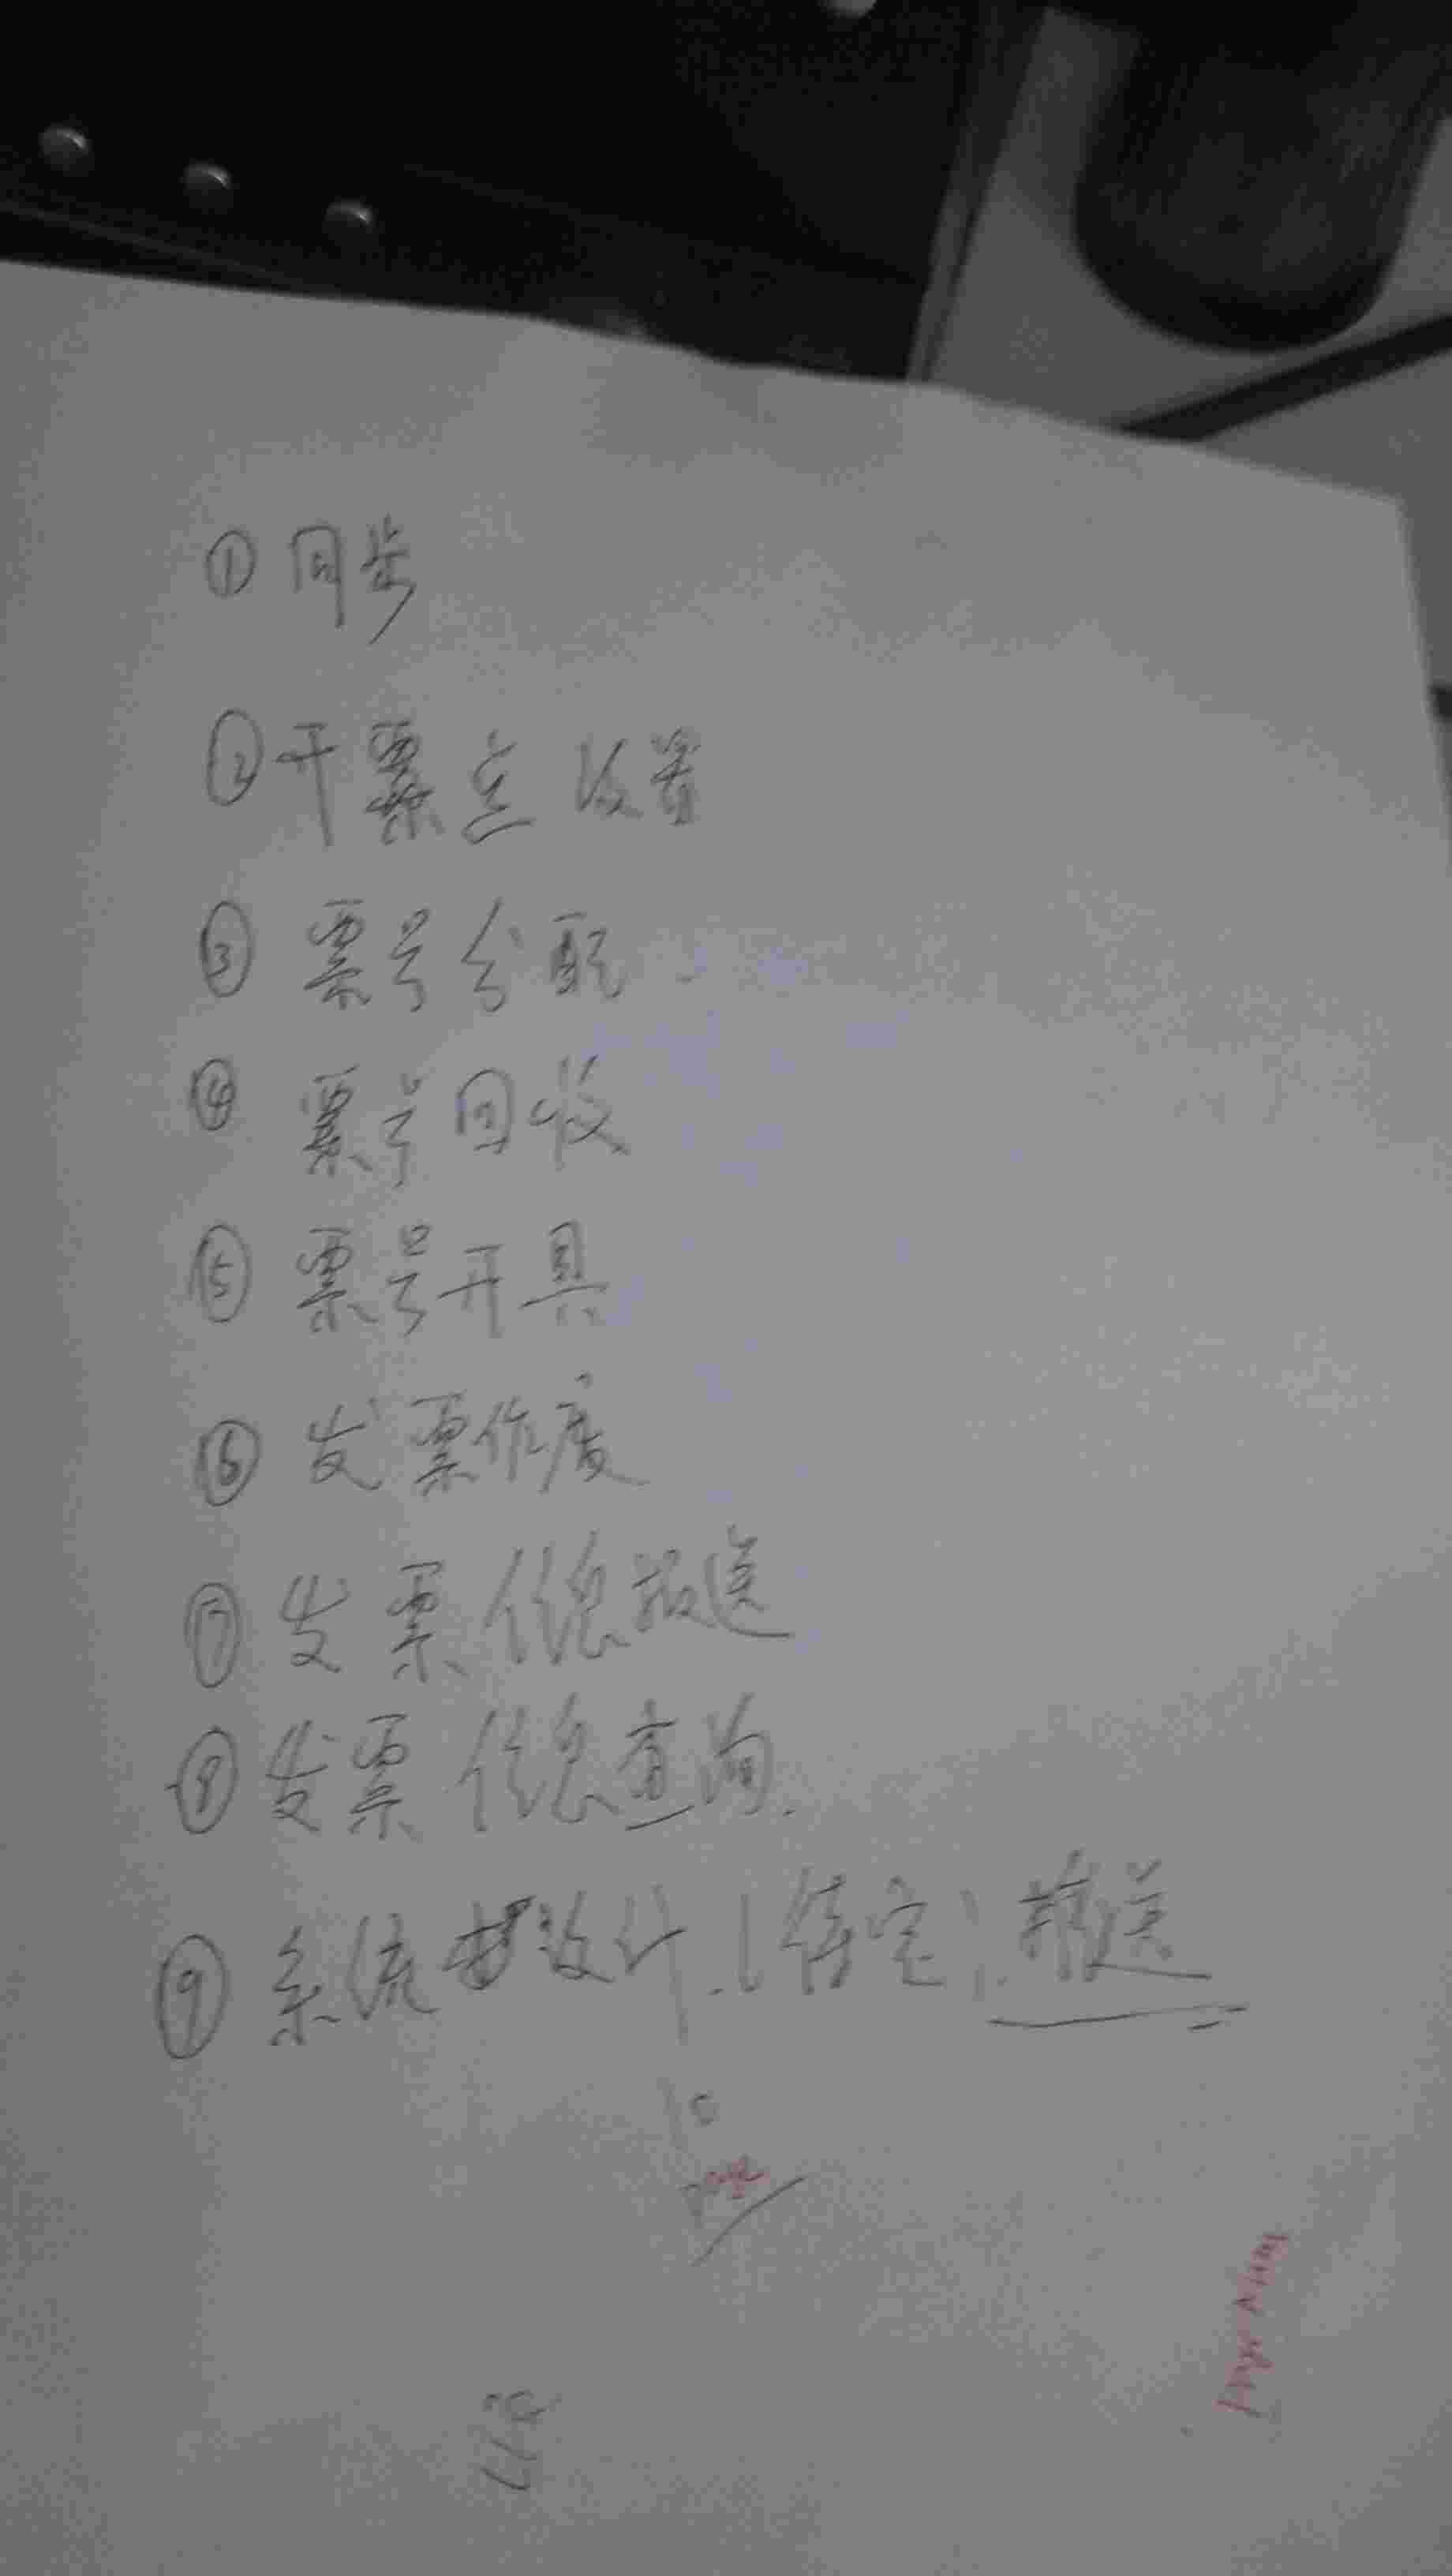 ① 同步
② 开票点设置
③ 票号分配
④ 票号回收
⑤ 票号开具
⑥ 发票作废
⑦ 发票信息报送
⑧ 发票信息查询.
⑨ 系统 设计.(待定).推送